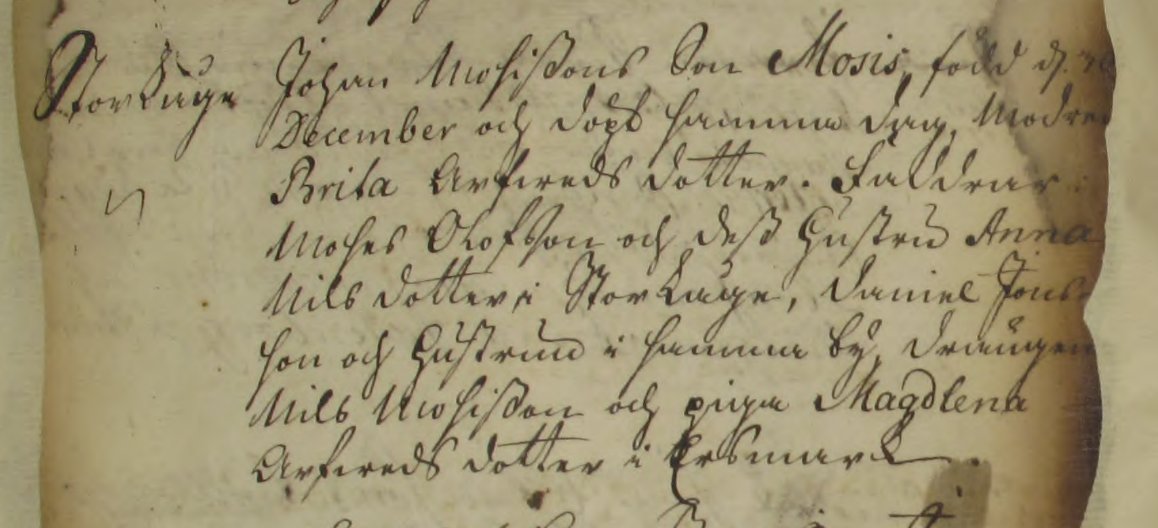 StorKåge Johan Mosissons Son Mosis, född d.
December och döpt samma dag, Modren
Brita Arfweds dotter. Faddrar
Moses Olofsson och dess Hustru Anna
Nils dotter i StorKåge, Daniel Jons-
son och Hustrun i samma by, Drängen
Nils Mosisson och pigan Magdlena
Arfweds dotter i Ersmark